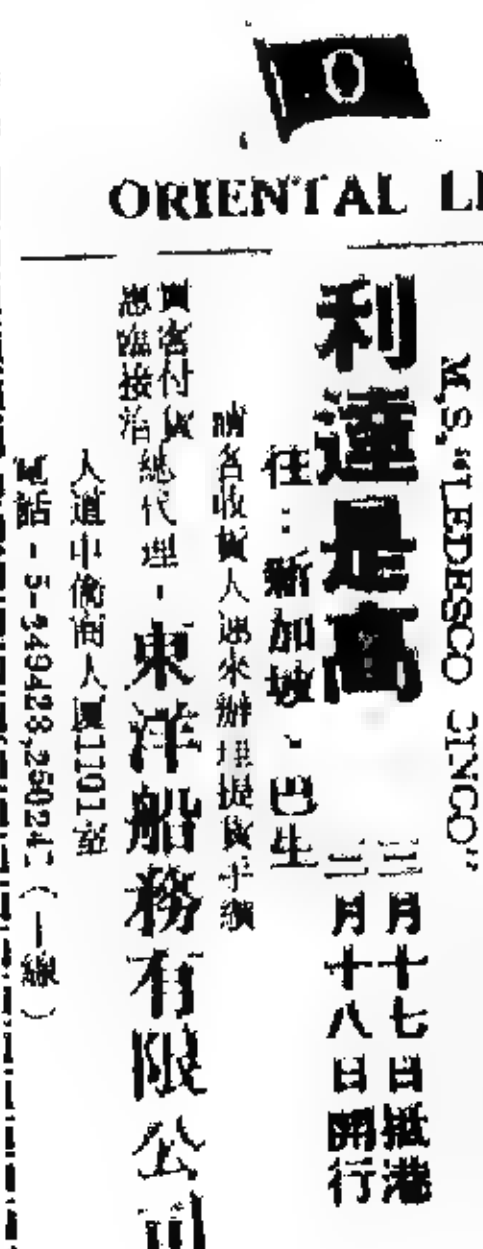 O
ORIENTAL LI
M.S. "LEDESCO CINCO"
利達是高
三月十七日抵港
三月十八日開行
往：新加坡、巴生
請各收貨人速來辦理提貨手續
貴客付貨
惠臨接洽
總代理：東洋船務有限公司
人道中僑商人厦1101室
電話-5-249423,25024（一線）